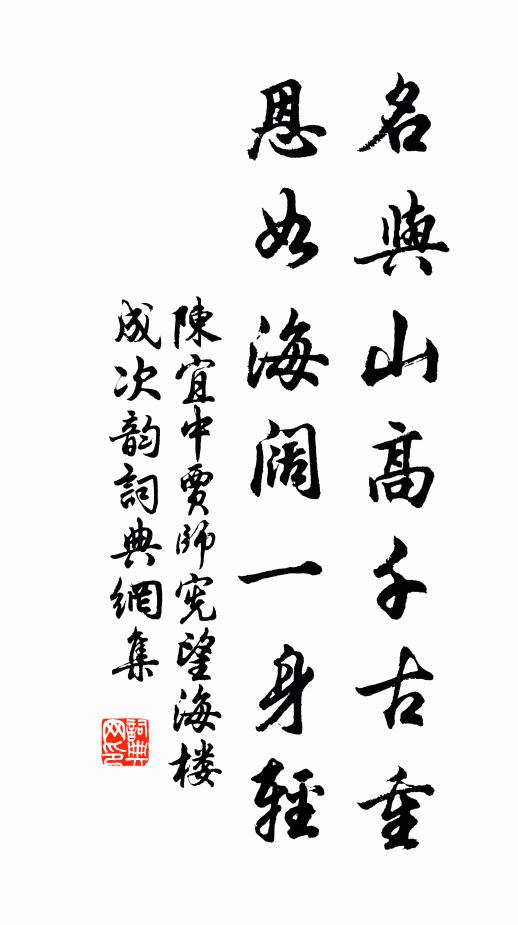 名與山高千古重
恩如海阔一身輕
陳宜中賈師宪望海楼
成次韵詞典網集
詞典網印